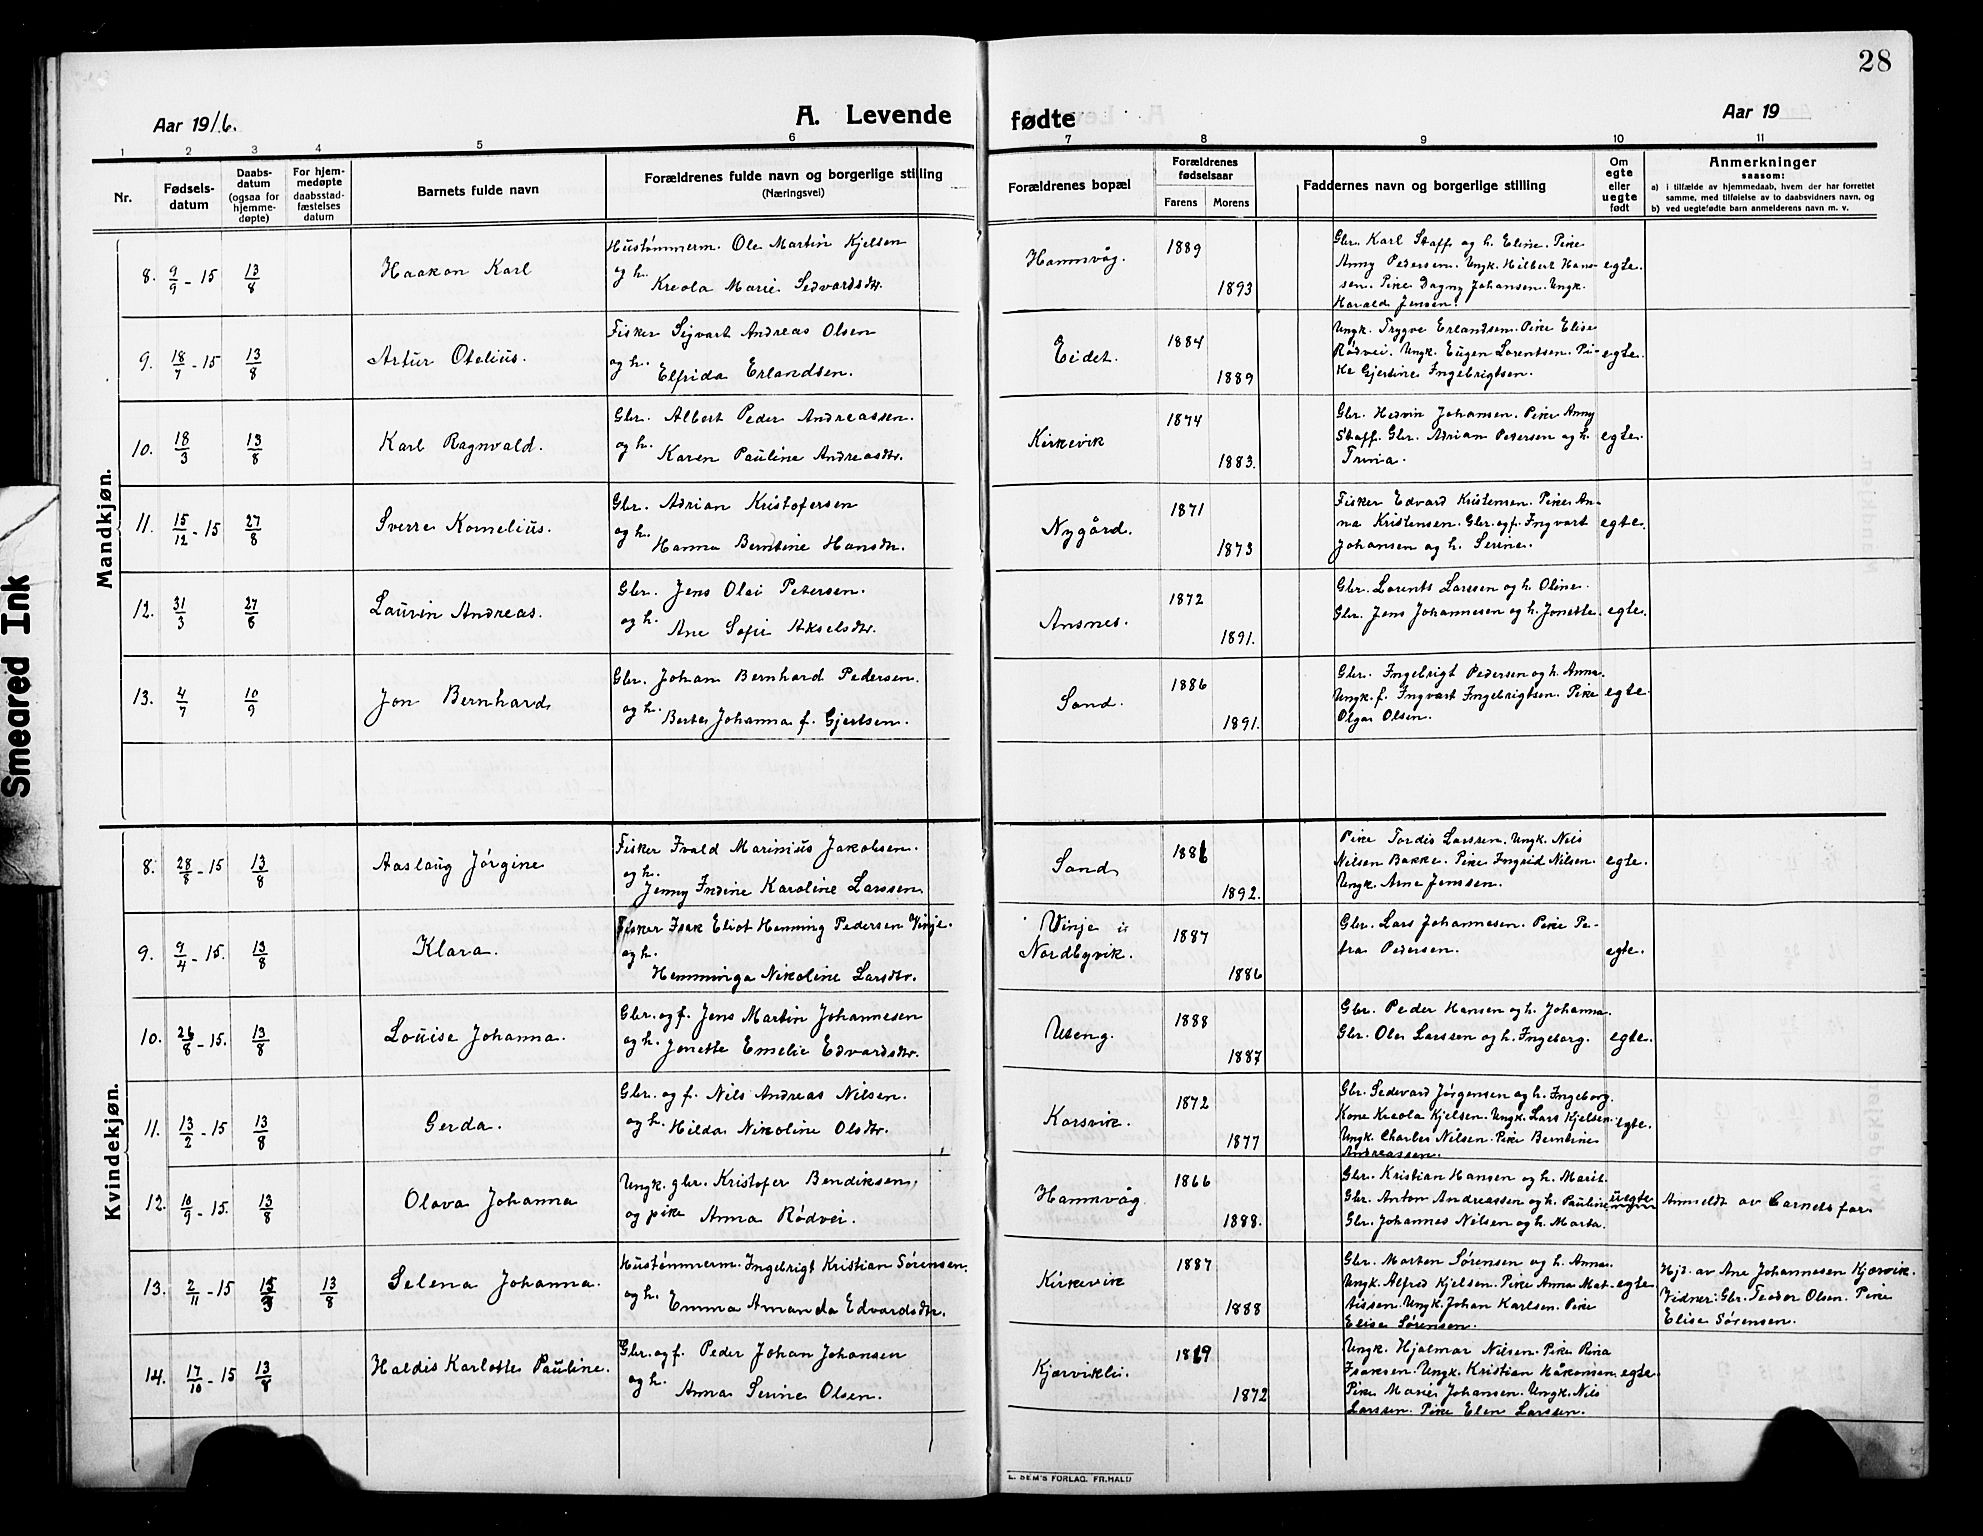 28
Aar 1916.
A. Levende
fødte
Aar 19
1 2 3 4 5 6 7 8 9 10 11
Nr.
Fødsels-
datum
Daabs-
datum
(ogsaa for
hjemme-
døpte)
For hjem-
medøpte
daabsstad-
fæstelses
datum
Barnets fulde navn
Forældrenes fulde navn og borgerlige stilling
(Næringsvei)
Forældrenes bopæl
Forældrenes
fødselsaar
Farens Morens
Faddernes navn og borgerlige stilling
Om
egte
eller
uegte
født
Anmerkninger
saasom:
a) i tilfælde av hjemmedaab, hvem der har forrettet
samme, med tilføielse av to daabsvidners navn, og
b) ved uegtefødte barn anmelderens navn m. v.
Mandkjøn.
8. 9/9 - 15 13/8 Haakon Karl
Hustømmerm. Ole Martin Kjelsen
og h.
Kreola Marie Sedvardsdtr.
Hamnvåg.
1889
1893
Gbr. Karl Staff og h. Eline. Pike
Anny Pedersen. Ungk. Hilbert Han-
sen. Pike Dagny Johansen. Ungk.
Harald Jensen.
egte.
9. 18/7 - 15 13/8 Artur Otelius.
Fisker Sigvart Andreas Olsen
og h.
Elfrida Erlandsen.
Eidet.
1884
1889
Ungk. Trygve Erlandsen. Pike Elise
Rødvei. Ungk. Eugen Lorentsen. Pi-
ke Gjertine Ingebrigtsen.
egte.
10. 18/3 13/8 Karl Ragnvald.
Gbr. Albert Peder Andreassen.
og h.
Karen Pauline Andreasdtr.
Kirkevik
1874
1883.
Gbr. Hedvin Johansen. Pike Anny
Staff. Gbr. Adrian Pedersen og h.
Trina.
egte.
11. 15/12 - 15 27/8 Sverre Kornelius.
Gbr. Adrian Kristofersen
og h.
Hanna Berntine Hansdtr.
Nygård.
1871
1873
Fisker Edvard Kristensen. Pike An-
na Kristensen. Gbr. og f. Ingvart
Johansen og h. Serine.
egte.
12. 31/3 27/8 Laurin Andreas.
Gbr. Jens Olai Petersen.
og h.
Ane Sofie Akselsdtr.
Ansnes.
1872
1891.
Gbr. Lorents Larssen og h. Oline.
Gbr. Jens Johannesen og h. Jonette.
egte.
13. 4/7 10/9 Jon Bernhard
Gbr. Johan Bernhard Pedersen.
og h.
Berte Johanna f. Gjertsen.
Sand.
1886
1891.
Gbr. Ingebrigt Pedersen og h. Anna.
Ungk. f. Ingvart Ingebrigtsen. Pike
Olga Olsen.
egte.
Kvindekjøn.
8. 28/8 - 15 13/8 Aaslaug Jørgine
Fisker Ivald Marinius Jakobsen.
og h.
Jenny Indine Karoline Larssen.
Sand
1886
1892.
Pike Tordis Larssen. Ungk. Nils
Nilsen Bakke. Pike Ingrid Nilsen.
Ungk. Arne Jenssen.
egte.
9. 9/4 - 15. 13/8 Klara.
Fisker Isak Eliot Henning Pedersen Vinje.
og h.
Hemminga Nikoline Larsdtr.
Vinje i
Nordbyvik.
1887
1886
Gbr. Lars Johannesen. Pike Pe-
tra Pedersen.
egte.
10. 26/8 - 15. 13/8 Louise Johanna.
Gbr. og f. Jens Martin Johannesen
og h.
Jonette Emelie Edvardsdtr.
Useng.
1888
1887
Gbr. Peder Hansen og h. Johanna.
Gbr. Ole Larssen og h. Ingeborg.
egte.
11. 13/2 - 15 13/8 Gerda.
Gbr. og f. Nils Andreas Nilsen.
og h.
Hilda Nikoline Olsdtr.
Korsvik.
1872
1877
Gbr. Sedevard Jørgensen og h. Ingeborg.
Kone Kreola Kjelsen. Ungk. Lars Kjelsen.
Ungk. Charles Nilsen. Pike Berntine
Andreassen.
egte.
12. 10/9 - 15. 13/8 Olava Johanna
Ungk. gbr. Kristofer Bendiksen,
og pike
Anna Rødvei.
Hamnvåg.
1866
1888.
Gbr. Kristian Hansen og h. Marit.
Gbr. Anton Andreassen og h. Pauline
Gbr. Johannes Nilsen og h. Marta.
uegte
Anmeldt av barnets far
13. 2/11 - 15 15/3 13/8 Selena Johanna.
Hustømmerm. Ingebrigt Kristian Sørensen.
og h.
Emma Amanda Edvardsdtr.
Kirkevik
1887
1888
Gbr. Morten Sørensen og h. Anna.
Ungk. Alfred Kjelsen. Pike Anna Mat-
tissen. Ungk. Johan Karlsen. Pike
Elise Sørensen.
egte.
Hjd. av Ane Johannesen Kjærvik.
Vidner: Gbr. Teodor Olsen. Pike
Elise Sørensen.
14. 17/10 - 15 13/8 Haldis Karlotte Pauline.
Gbr. og f. Peder Johan Johansen
og h.
Anna Serine Olsen.
Kjærvikli.
1872
Ungk. Hjalmar Nilsen. Pike Rina
Isaksen. Ungk. Kristian Håkonsen.
Pike Marie Johansen. Ungk. Nils
Larssen. Pike Elen Larssen.
egte.
E. SEM'S FORLAG, FR.HALD
Smeared Ink